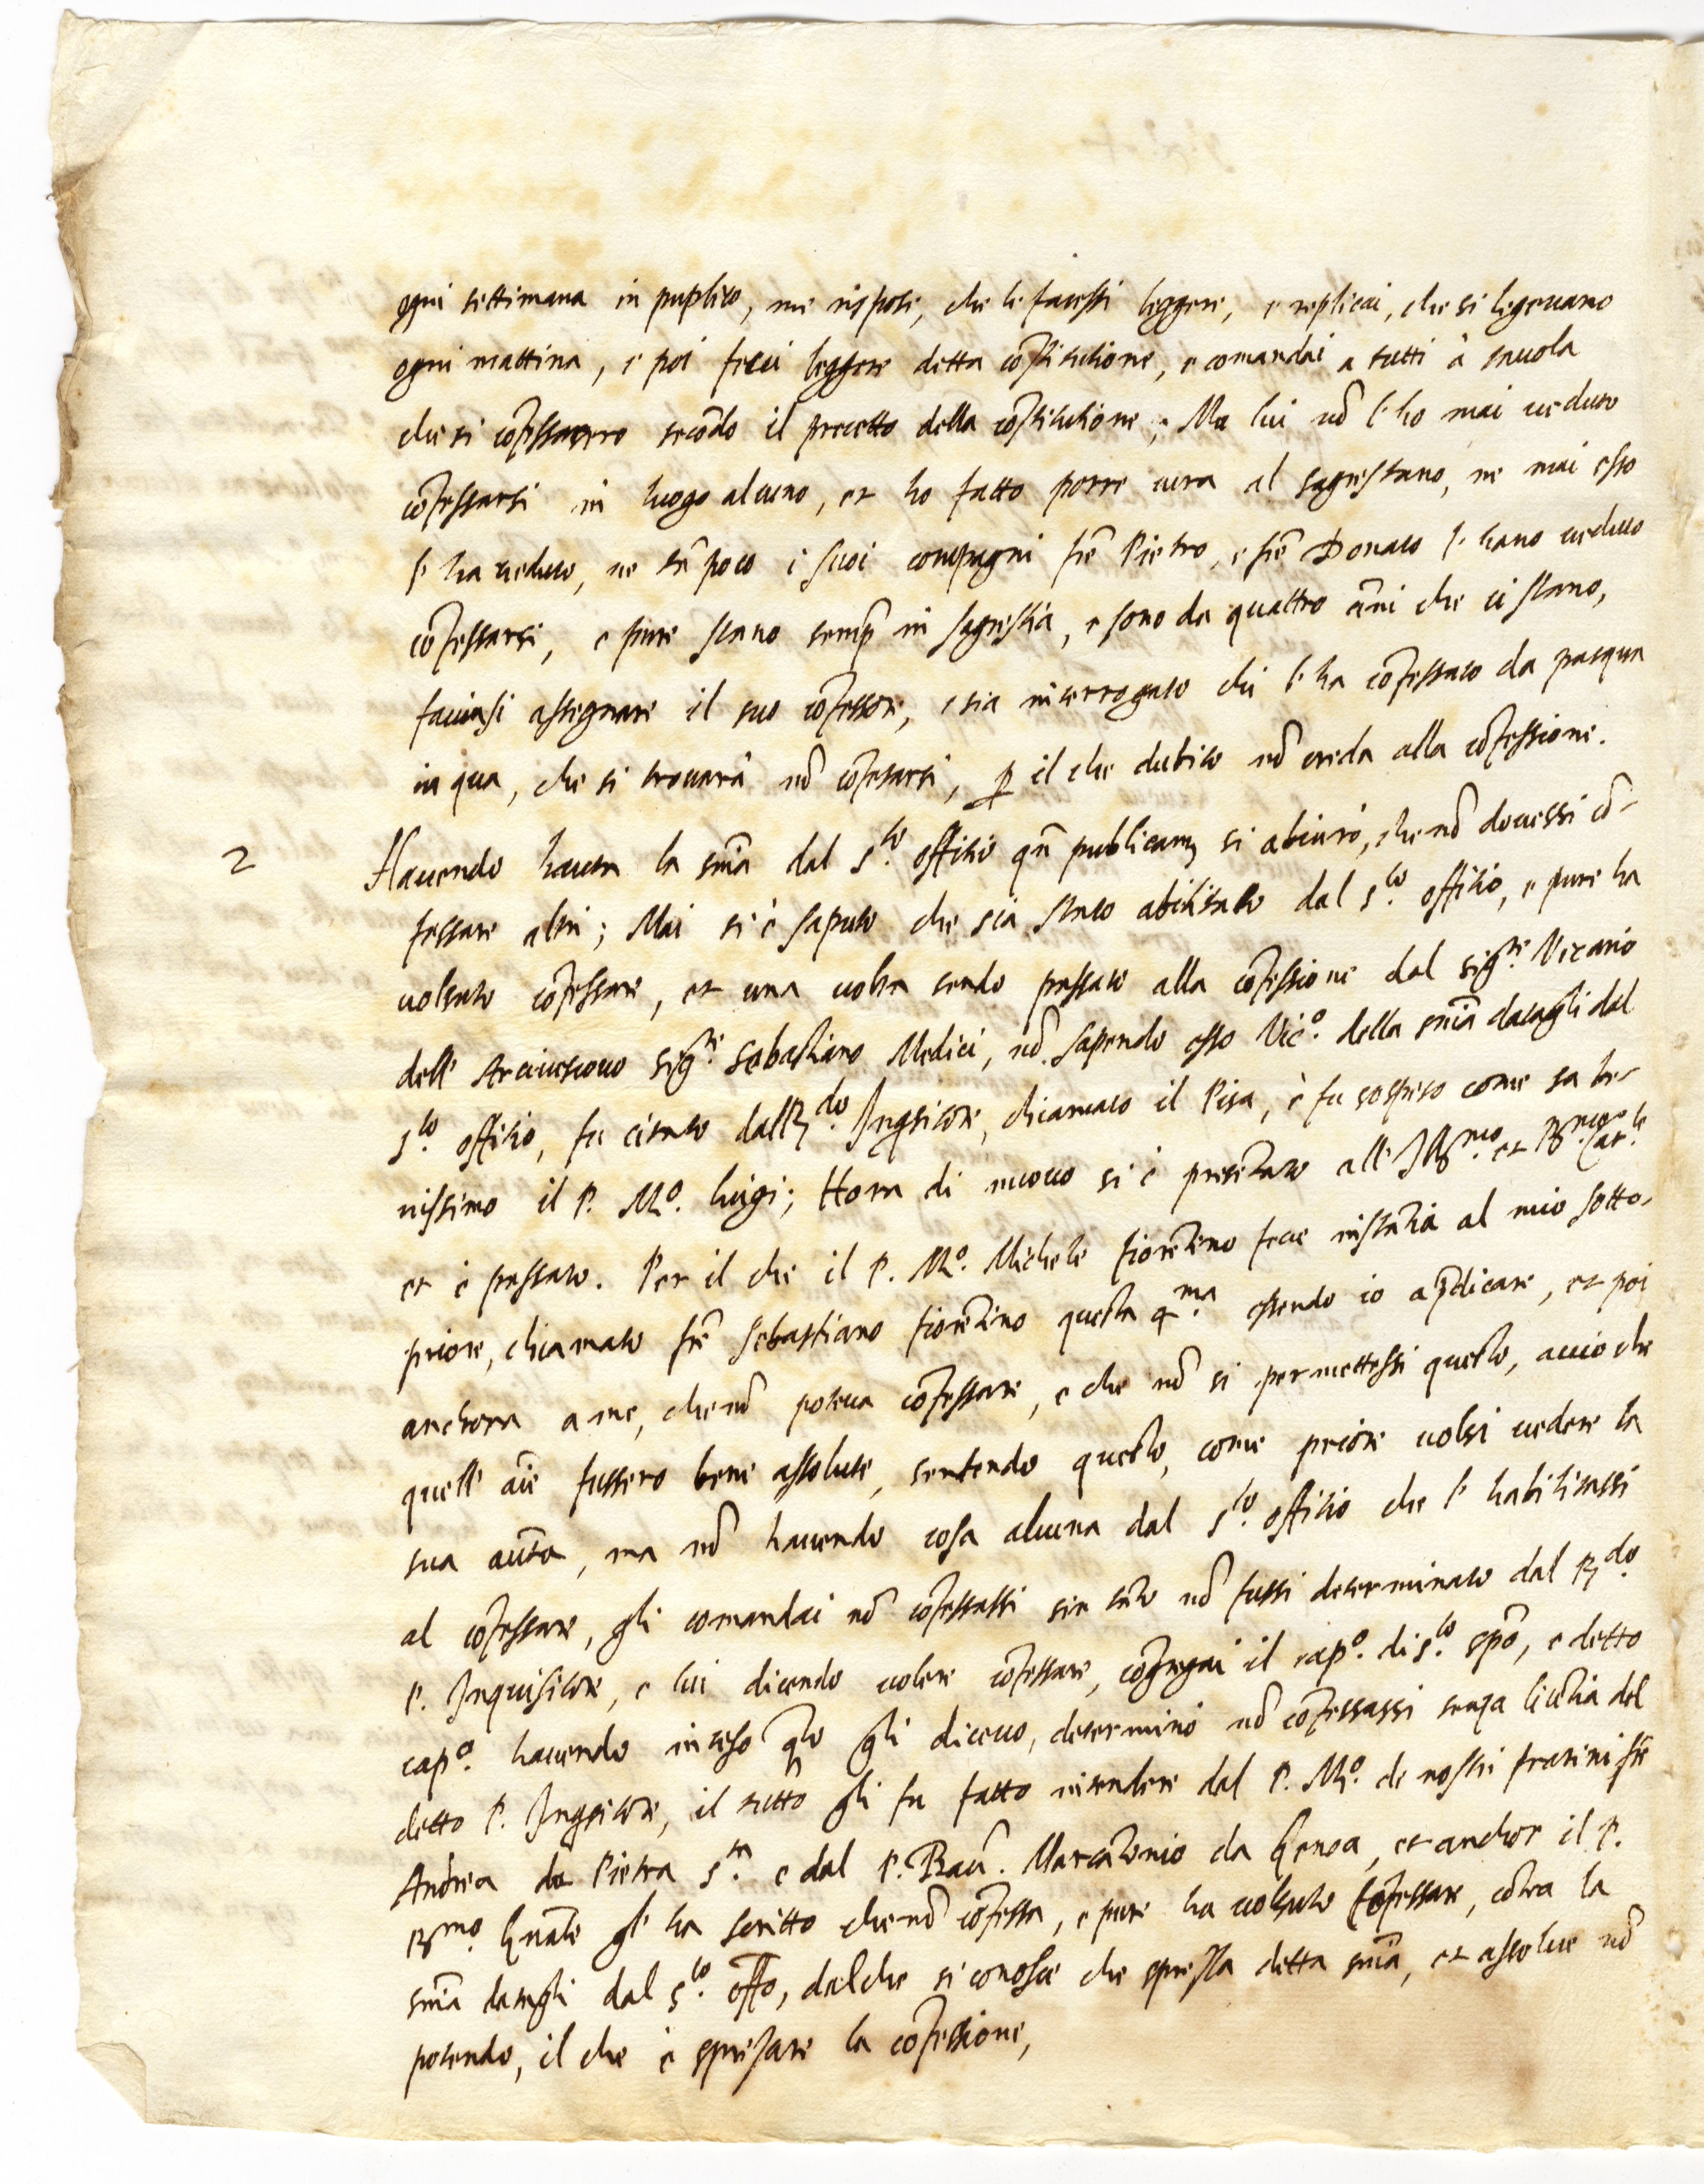 ogni settimana in puplico, me rispose, che le facessi leggere, e replicai, che si legevano
ogni mattina, e poi feci leggere detta cõstitutione, e comandai a tutti à tavola
che si cõfessassero secõdo il precetto della cõstitutione; Ma lui nõ l'ho mai veduto
cõfessarsi in luogo alcuno, et ho fatto porre cura al sagrestano, ne mai esso
l'ha veduto, ne tã poco i suoi compagni frẽ Pietro, e frẽ Donato l'hano veduto
cõfessarsi, e pure stano semp̃ in sagrestia, e sono da quattro ãni che ci stano,
facciasi assegnare il suo cõfessore, e sia interrogato chi l'ha cõfessato da pasqua
in qua, che si trovarà nõ cõfesarsi, ꝑ il che dubito nõ creda alla cõfessione.
2 Havendo havuta la sñia dal s.to offitio qñ publicamẽ si abiurò, che nõ dovessi cõ-
fessare altri; Mai si è saputo che sia stato abilitato dal s.to offitio, e pure ha
voluto cõfessare, et una volta sendo passato alla cõfessione dal sig.re Vicario
dell' Arcivescovo sig.re Sebastiano Medici, nõ sapendo esso Vic.o della sñia datagli dal
s.to offitio, fu citato dall R.do Inqsitore, chiamato il Pisa, è fu sospeso come sa be-
nissimo il P. M.o luigi; Hora di nuovo si è presẽtato all' Ill.mo et R.mo Car.le
et è passato. Per il che il P. M.o Michele fiorẽtino fece instãtia al mio sotto-
priore, chiamato frẽ Sebastiano fiorẽtino questa q.ma essendo io a p̃dicare, et poi
anchora a me, che nõ poteva cõfessare, e che nõ si permettessi questo, acciò che
quell' aĩe fussero bene assolute, sentendo questo, come priore volsi vedere la
sua autta, ma nõ havendo cosa alcuna dal s.to offitio che l'habilitassi
al cõfessare, gli comandai nõ cõfessassi sin tãto nõ fussi determinato dal R.do
P. Inquisitore, e lui dicendo volere cõfessare, cõgregai il cap.o di s.to spõ, e detto
cap.o havendo inteso q̃to gli dicevo, determinò nõ cõfessassi senza licẽtia del
detto P. Inqsitore, il tutto gli fu fatto intendere dal P. M.o de nostri fratini frẽ
Andrea da Pietra s.ta e dal P. Bac̃. Marcãtonio da Genoa, et anchor il P.
R.mo Gñale gl' ha scritto che nõ cõfessa, e pure ha voluto cõfessare, cõtra la
sñia datagli dal s.to offo, dal che si conosce che spressa detta sñia, et assolve nõ
potendo, il che è spresare la cõfessione,